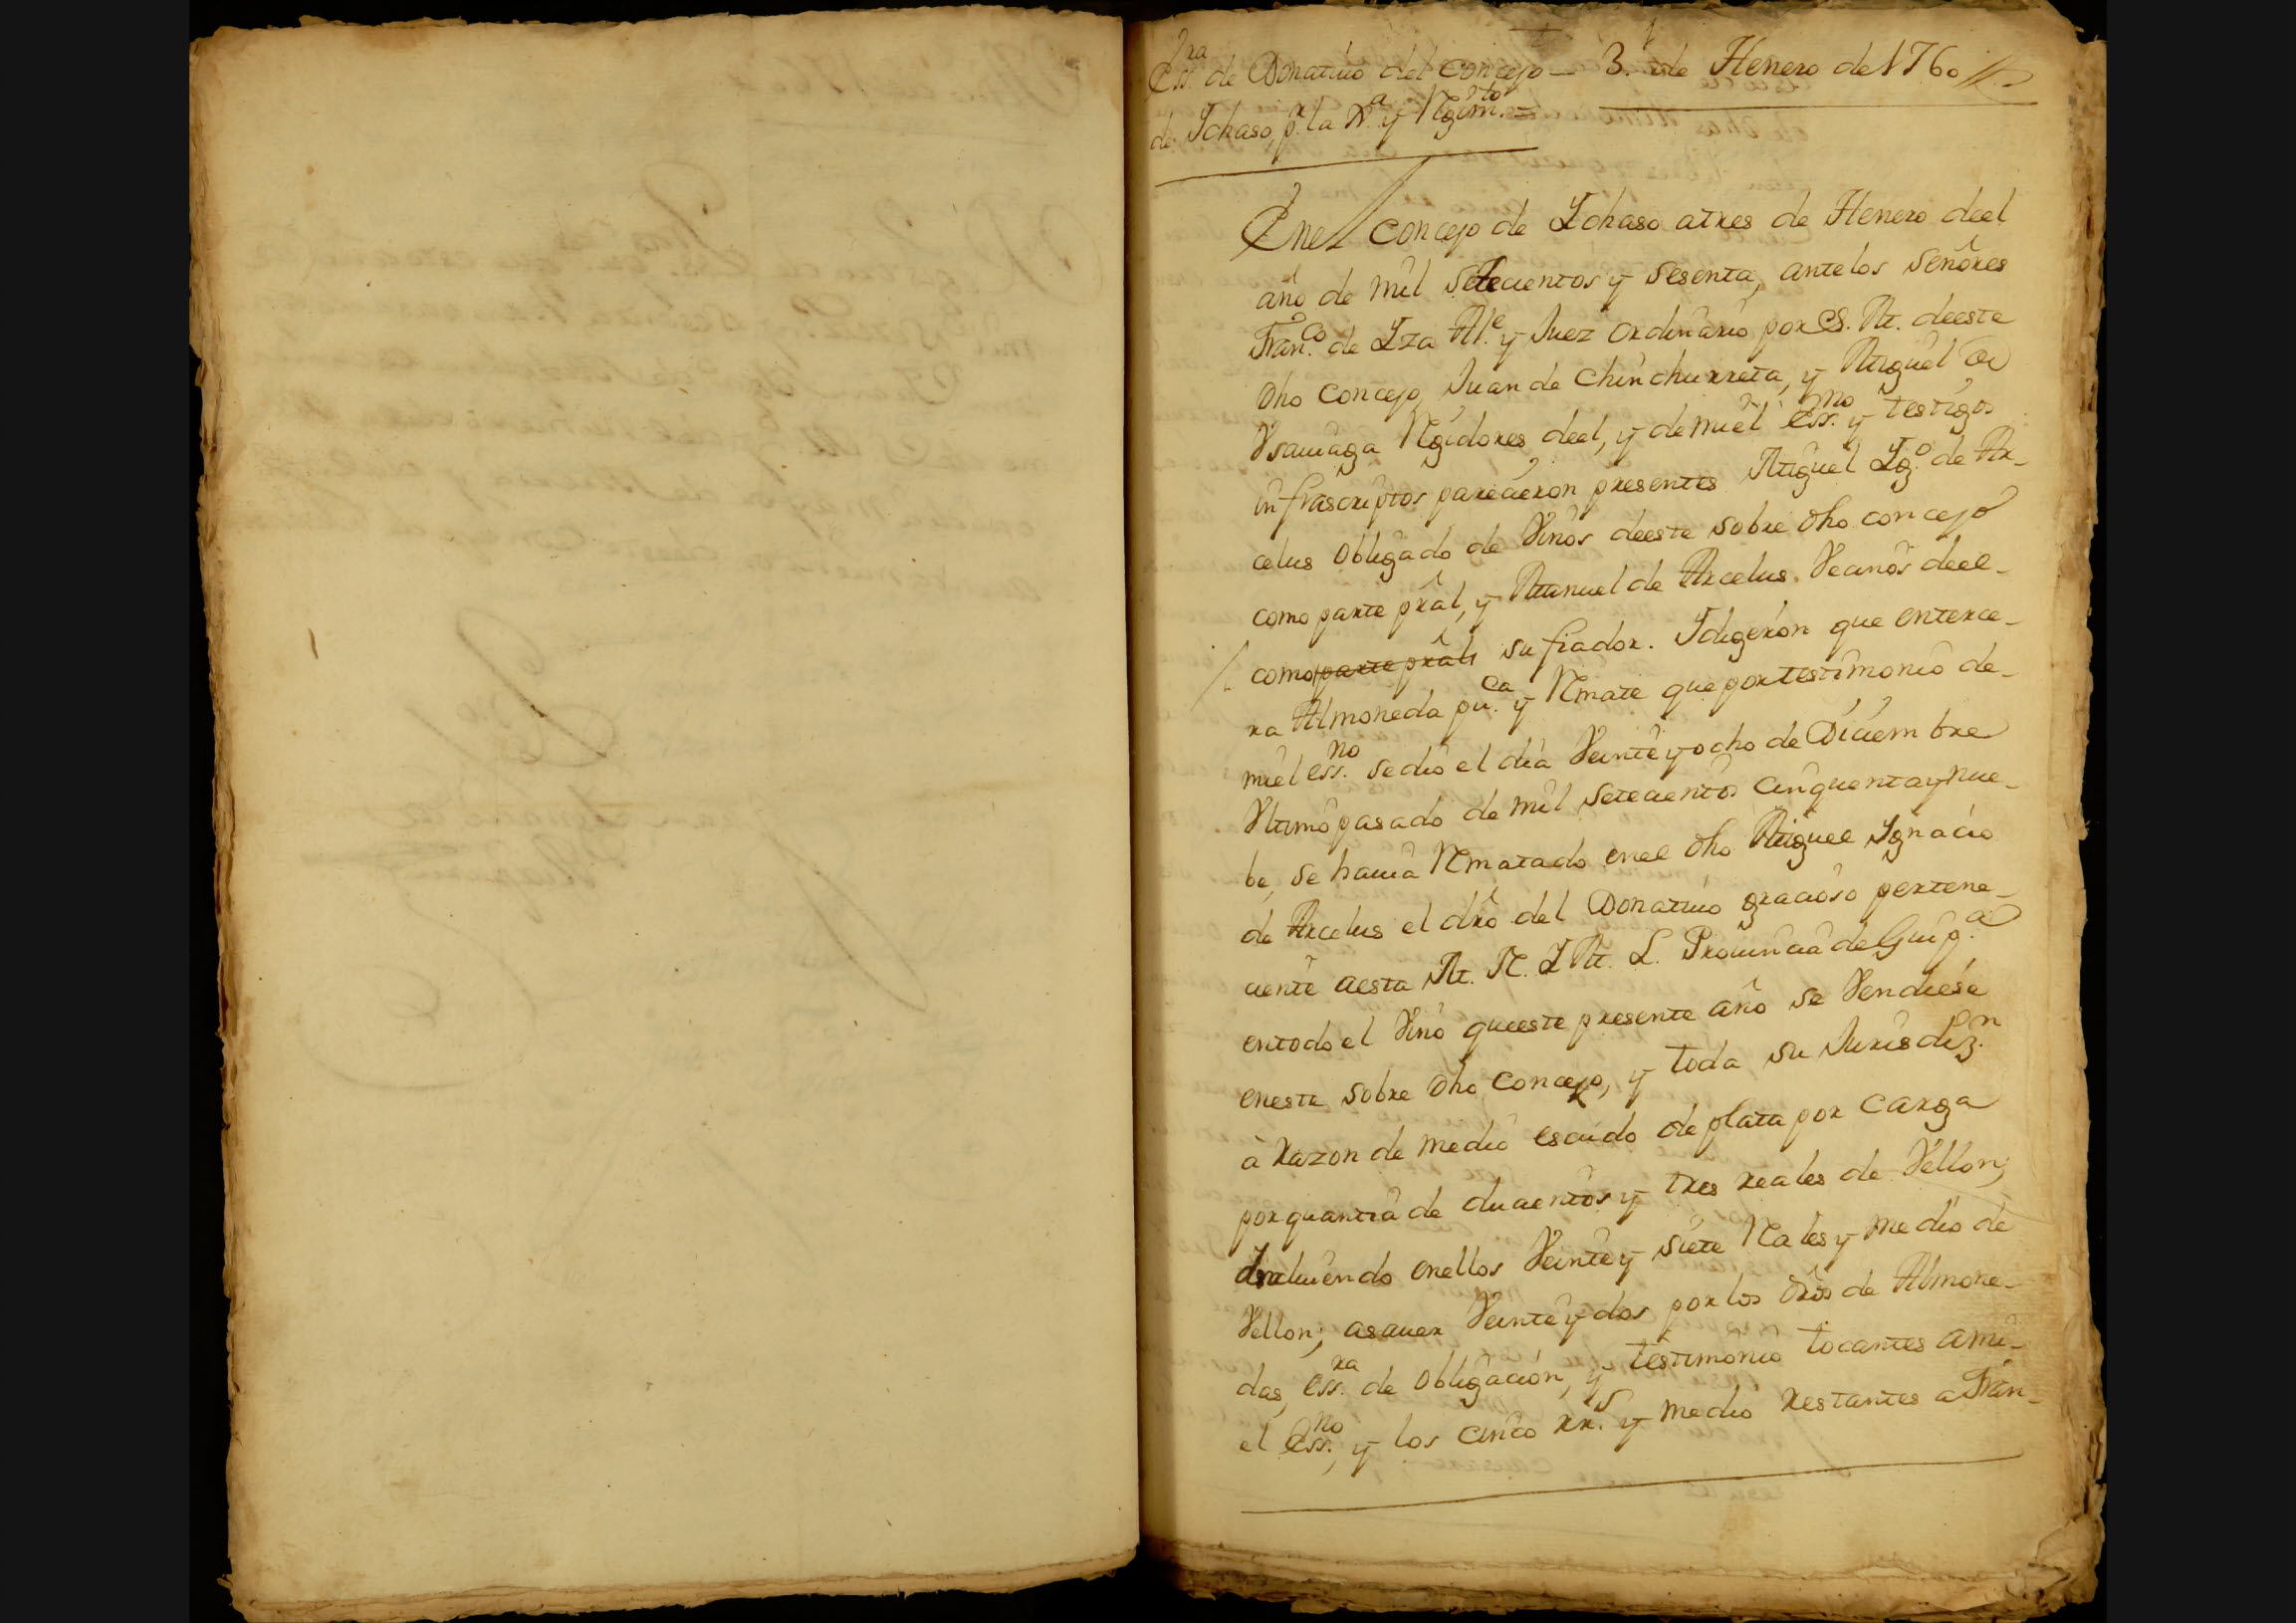 Ess.ra de Donatiuo del concejo — 3. de Henero de 1760
de Ichaso, p.r la N.a y Rgim.to =
En el concejo de Ychaso atres de Henero deel
año de mil setecientos y sesenta, antelos señores
Fran.co de Yza Al.e y Juez ordinario por S. M. deeste
dho concejo, Juan de Chinchurreta, y Miguel de
Vsauiaga Rgidores deel, y de miel ess.no y testigos
infrascriptos parecieron presentes Miguel Yg.o de Ar-
celus obligado de Vinos deeste sobre dho concejo
como parte prãl, y Manuel de Arcelus Vecinos deel-
como parte prãl su fiador. Idigeron que enterce-
ra Almoneda pu.ca y Rmate que por testimonio de-
miel ess.no sedio el dia Veinte y ocho de Diciembre
Vltimo pasado de mil setecientos cinquenta y nue-
be, se hauia Rmatado enel dho Miguel Ygnacio
de Arcelus el drõ del Donatiuo gracioso pertene-
ciente aesta M. N. Y M. L. Prouincia de Guip.a
entodo el Vino queeste presente año se Vendiese
eneste sobre dho concejo, y toda su Jurisdiz.n
à razon de medio escudo de plata por carga
por quantia de ducientos y tres reales de Vellon;
Incluiendo enellos Veinte y siete Rales y medio de
Vellon; asauer Veinte y dos por los drõs de Almone-
das, ess.ra de obligacion, y testimonio tocantes ami-
el Ess.no, y los cinco rr.s y medio restantes a Fran-